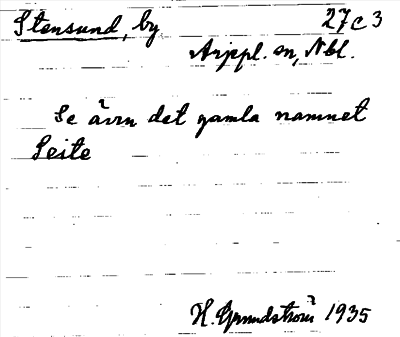 Stensund, by 27c3
Arjepl. sn, Nbl.
Se även det gamla namnet
Seite
H. Grundström 1935